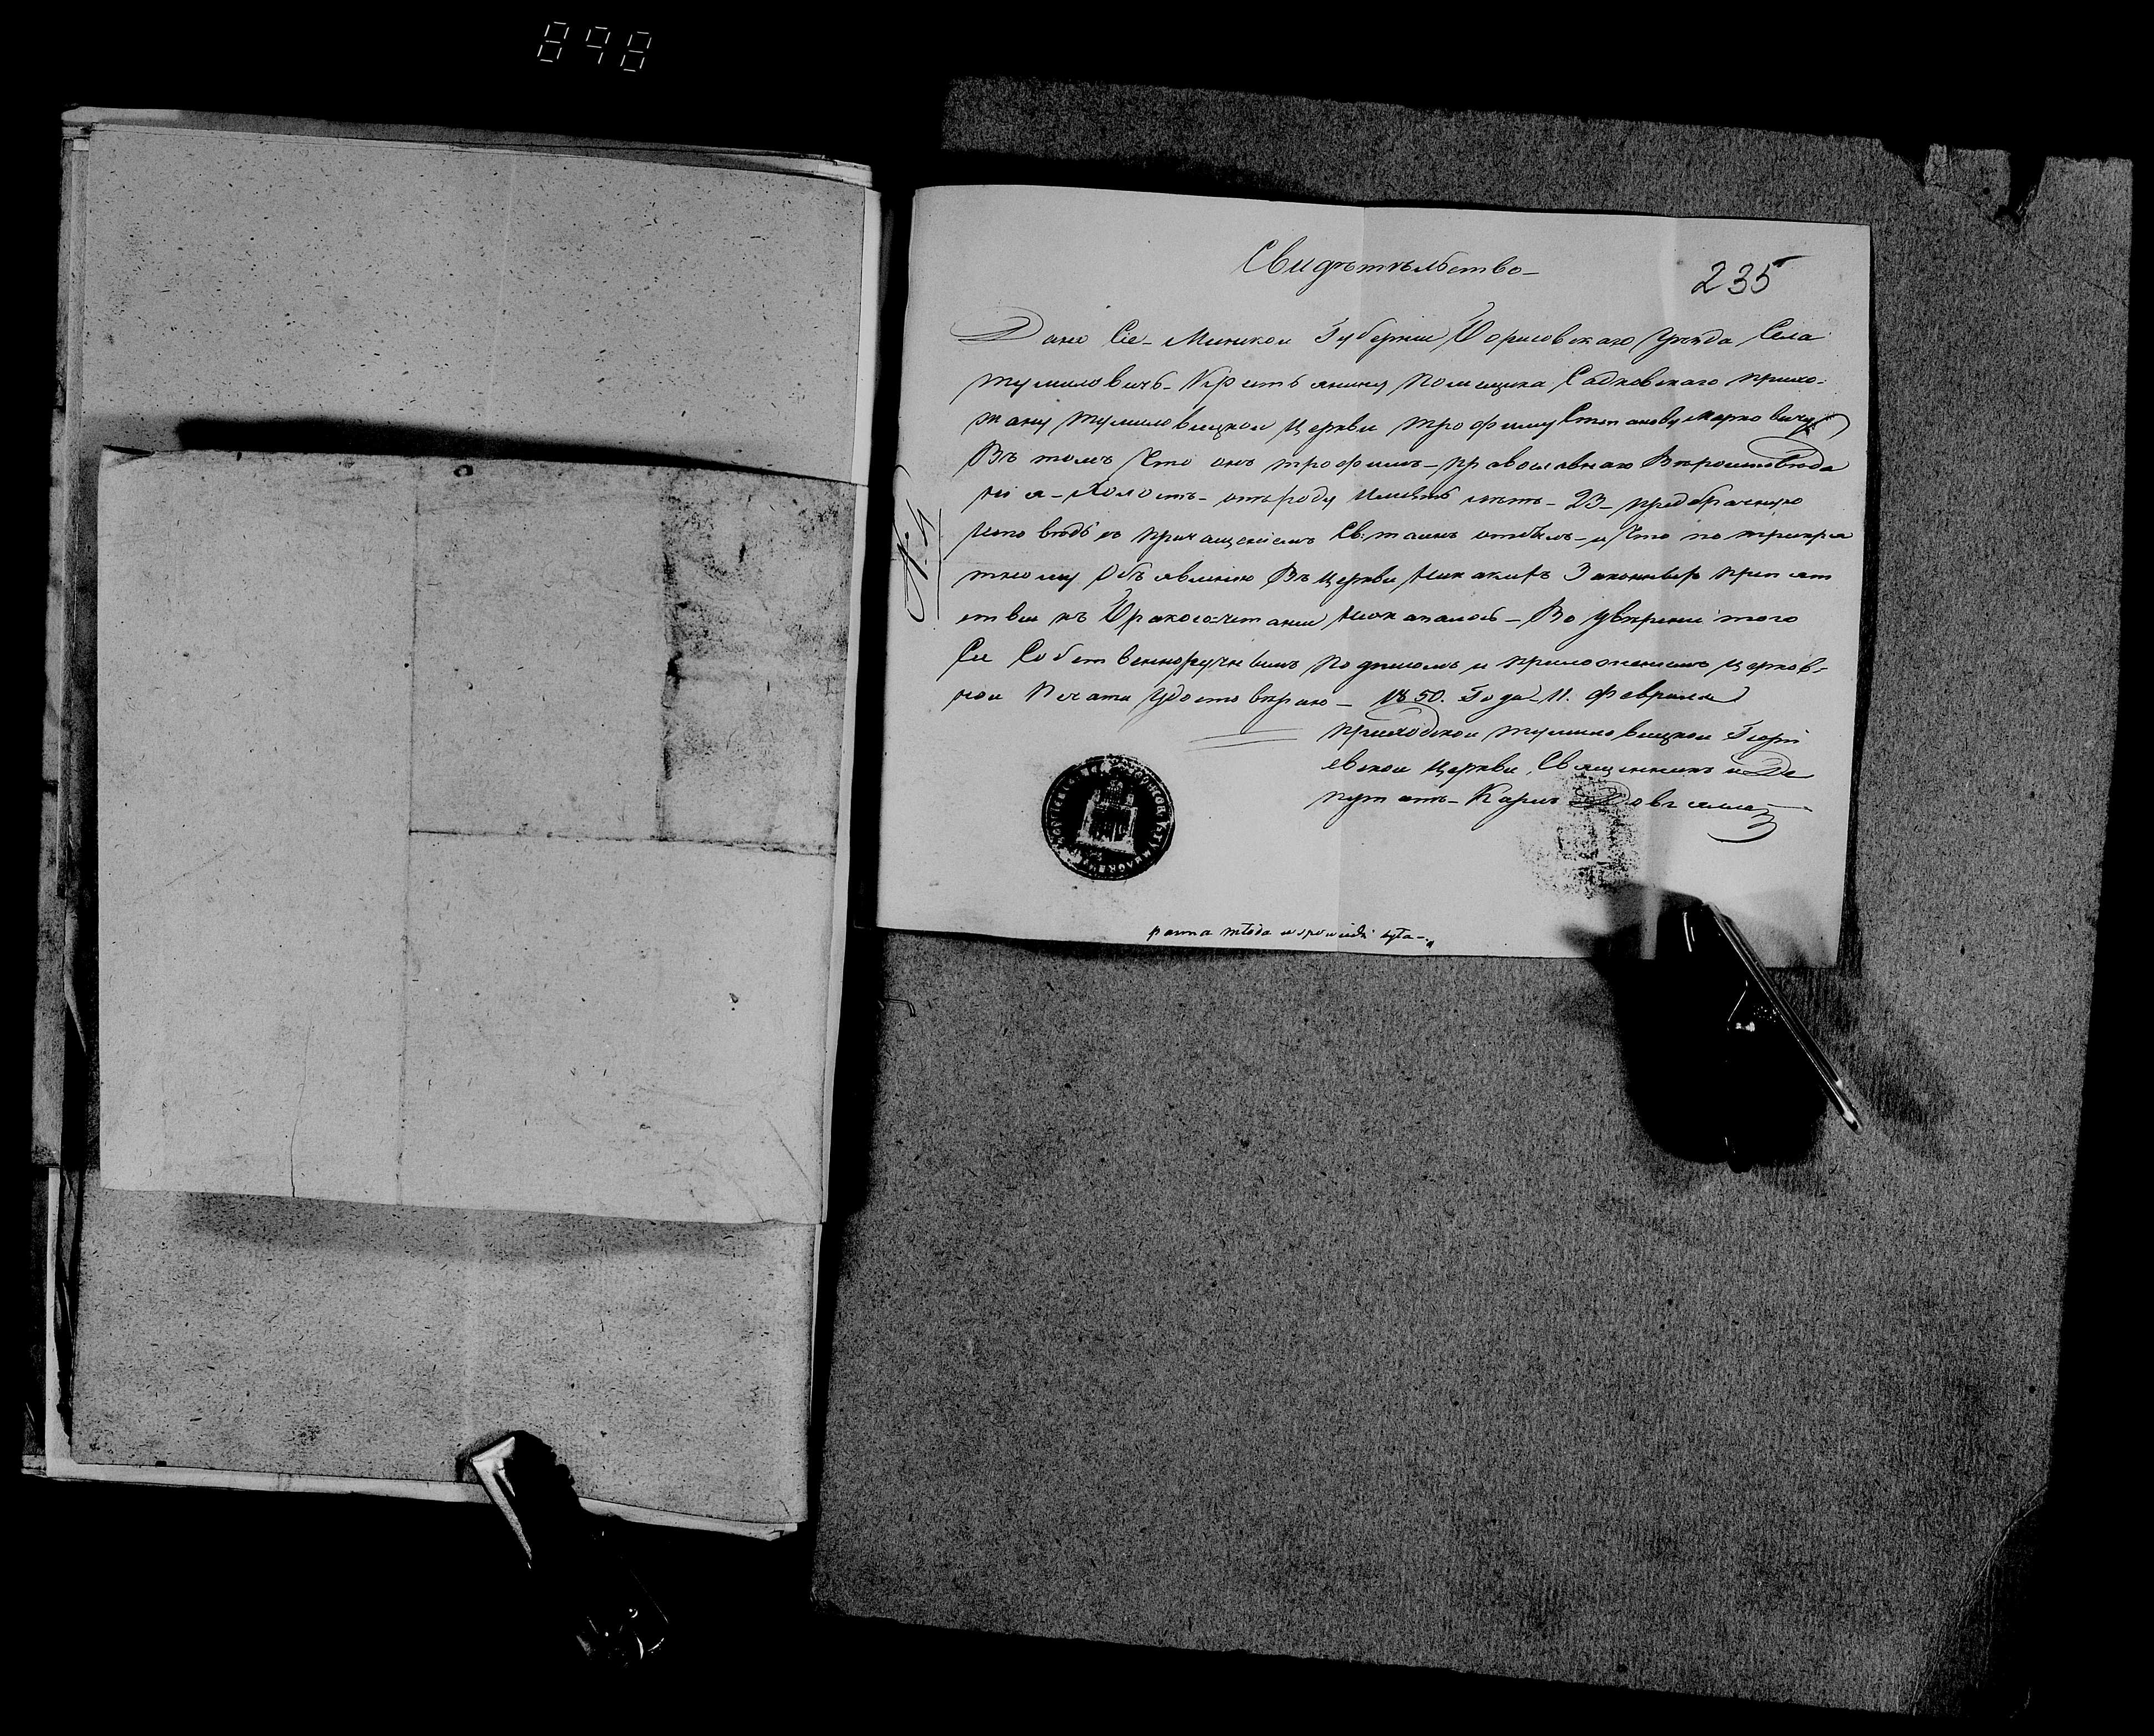 898
Свидѣтельство
235
Дано Сіе Минской Губерніи Борисовскаго Уѣзда Села
тумиловичъ Крестьянину Помещика Садковскаго прихо-
жану тумиловицкой церкви трофиму Степанову Марковичу
Въ томъ Что онъ трофимъ православнаго Вѣроисповѣда
нія Холостъ отъ роду имѣетъ лѣтъ 23 предбрачную
исповѣдь съ причащеніемъ Св: таинъ отбылъ и Что по трикра
тному Объявленію Въ церкви никакихъ Законныхъ препят
ствіи къ Бракосочетанію неоказалось Во увѣреніе того
Сіе Собственноручнымъ подписомъ и приложеніемъ церков-
ной Печати Удостовѣряю 1850. Года 11. февраля
приходской тумиловицкой Георгі
евской Церкви, Священникъ и Де
путатъ
N. 4
panna młoda u spowiedzi była